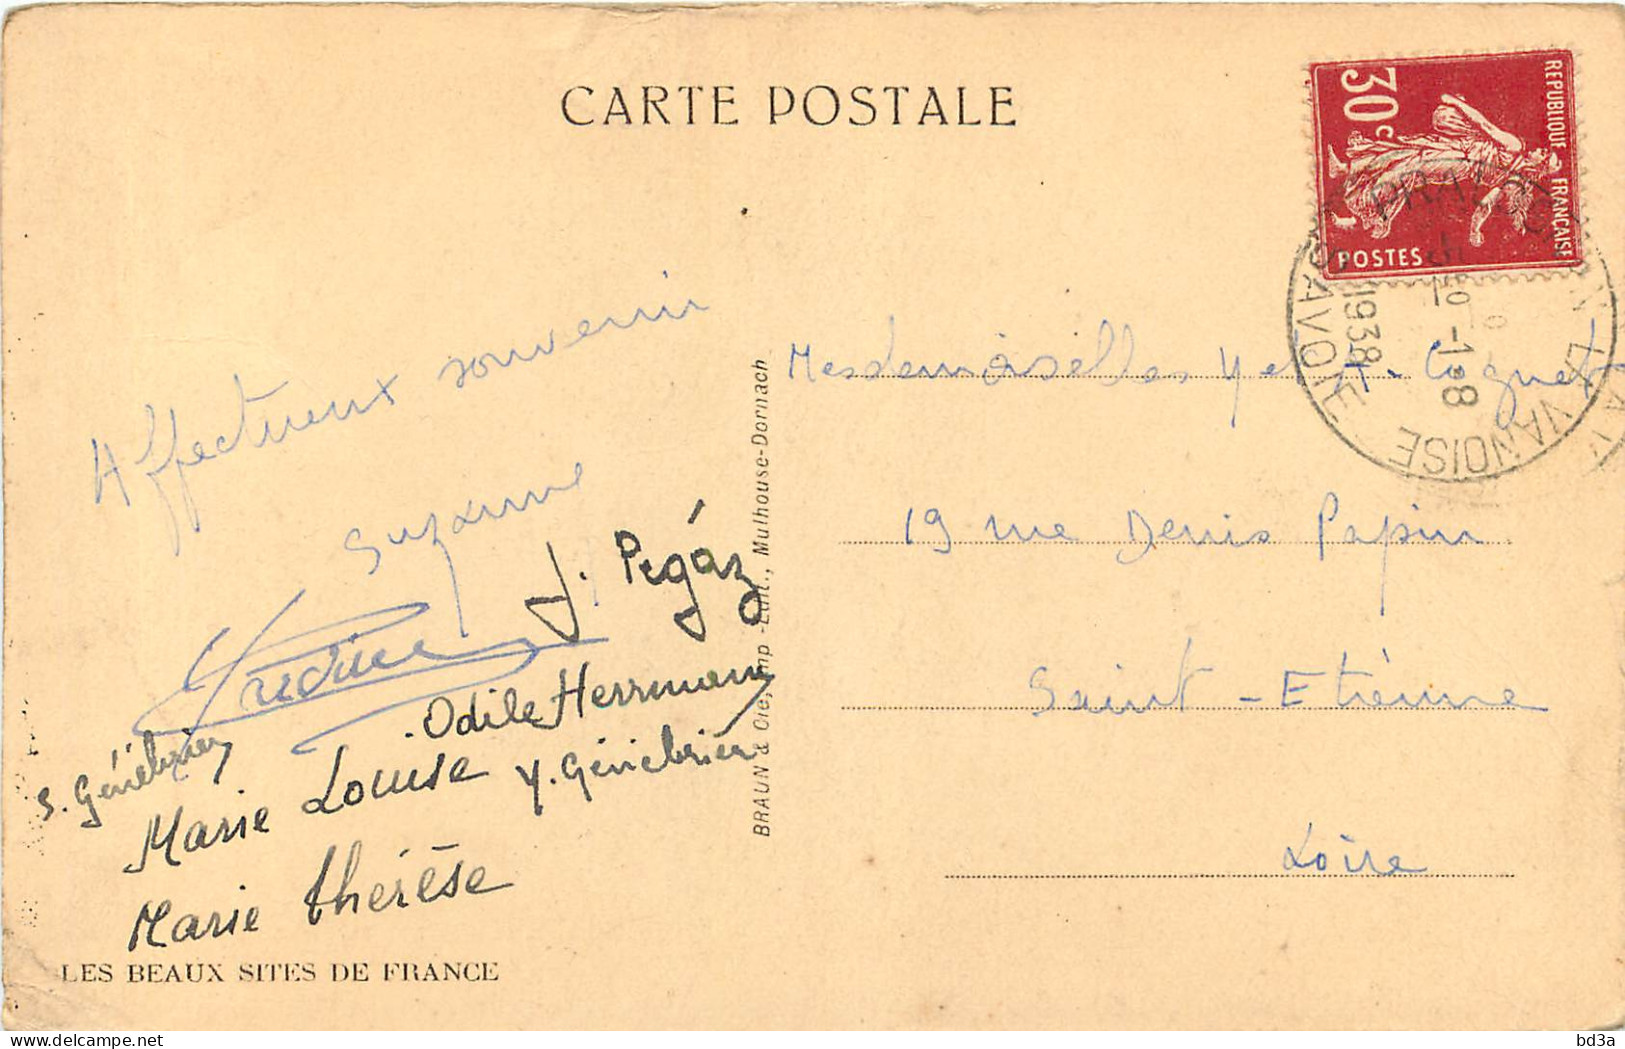 CARTE POSTALE
30 c
REPUBLIQUE FRANÇAISE
POSTES
LA VANOISE
SAVOIE
1-8
1938
Affectueux souvenir
Suzanne
J. Pegáz
Odile Herrmann
S. Génébrier
Marie Louise
Y. Génébrier
Marie thérèse
LES BEAUX SITES DE FRANCE
BRAUN & Cie, Imp.-Edit., Mulhouse-Dornach
Mesdemoiselles Y et
19 rue Denis Papin
Saint-Etienne
Loire
bd3a